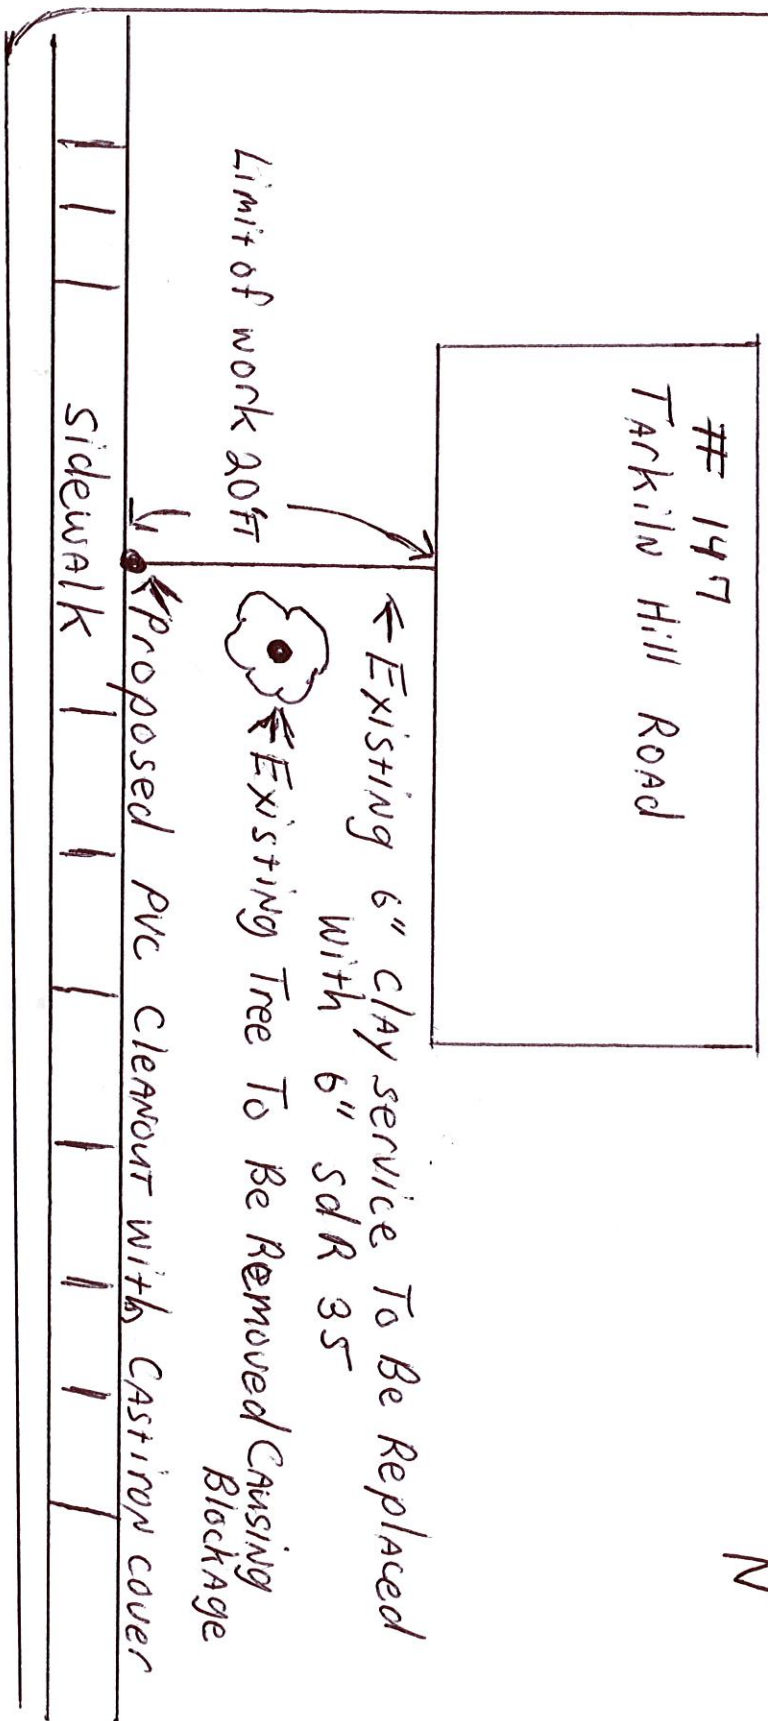 N
# 147
TArkilN Hill ROAd
Limit of work 20FT
← ExistiNg 6" ClAy service To Be Replaced
with 6" SdR 35
← ExistiNg Tree To Be Removed CAusiNg
BlockAge
← Proposed PVC CleANOUT with CAStiroN cover
SidewAlk